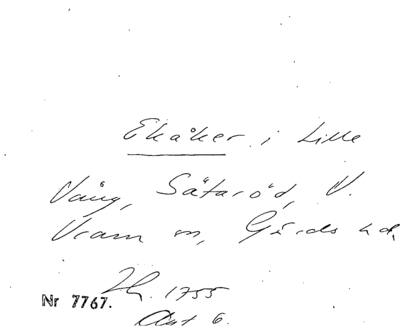 Ekåker i Lille
Vång, Sätaröd, V.
Vram sn, Gärds hd,
Nr 7767. 1755
Akt 6.